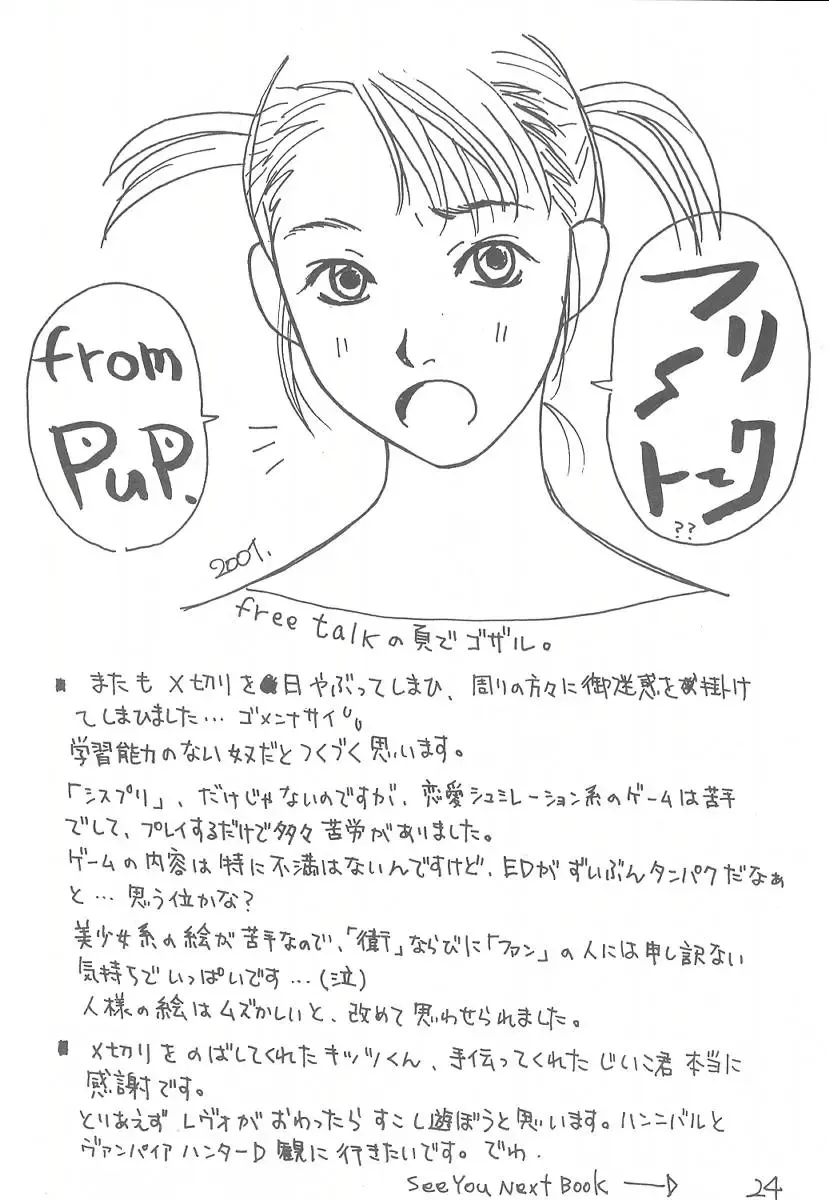 from
PuP.
フリ〜
トーク
??
2001.
free talkの頁でゴザル。
またも〆切りを日やぶってしまひ、周りの方々に御迷惑を掛け
てしまひました…ゴメンナサイ
学習能力のない奴だとつくづく思います。
「シスプリ」、だけじゃないのですが、恋愛シュミレーション系のゲームは苦手
でして、プレイするだけで多々苦労がありました。
ゲームの内容は特に不満はないんですけど、EDがずいぶんタンパクだなぁ
と…思う位かな?
美少女系の絵が苦手なので、「衛」ならびに「ファン」の人には申し訳ない
気持ちでいっぱいです…(泣)
人様の絵はムズかしいと、改めて思わせられました。
〆切りをのばしてくれたキッツくん、手伝ってくれたじいこ君本当に
感謝です。
とりあえずレヴォがおわったらすこし遊ぼうと思います。ハンニバルと
ヴァンパイアハンターD観に行きたいです。でわ.
See You Next Book
24